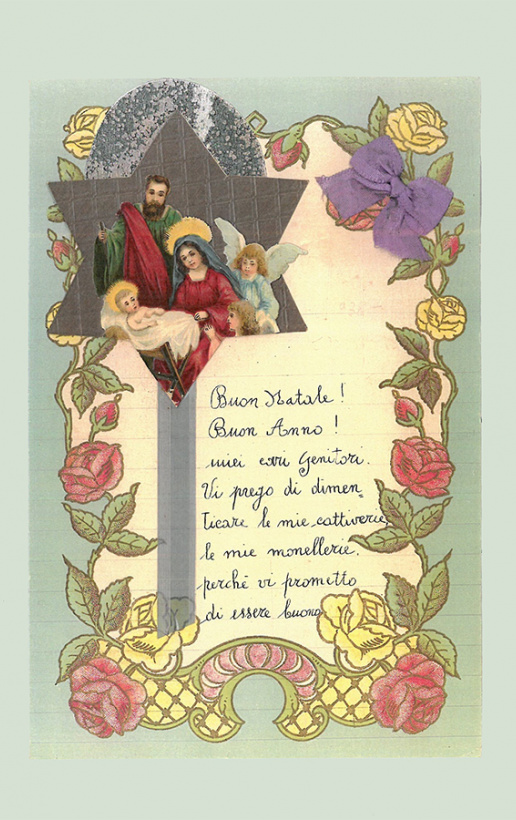 Buon Natale!
Buon Anno!
miei cari Genitori.
Vi prego di dimen=
ticare le mie cattiverie
le mie monellerie.
perchè vi prometto
di essere buono